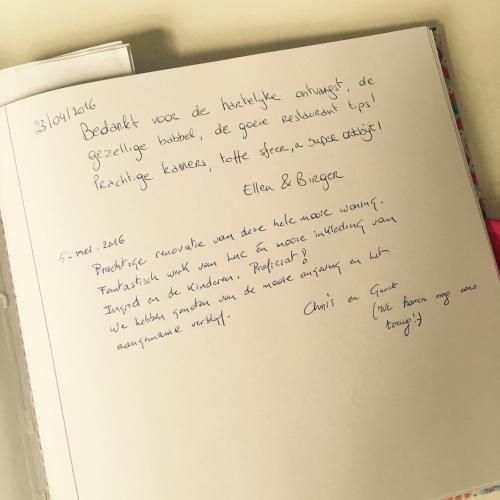 23/04/2016
Bedankt voor de hartelijke ontvangst, de
gezellige babbel, de goeie restaurant tips!
Prachtige kamers, toffe sfeer, a super ontbijt!
Ellen & Birger
5-mei-2016
Prachtige renovatie van deze hele mooie woning.
Fantastisch werk van Luc én mooie inkleding van
Ingrid en de kinderen, Proficiat!
We hebben genoten van de mooie omgeving en het
aangename verblijf.
Chris en
(We komen nog eens
terug!)